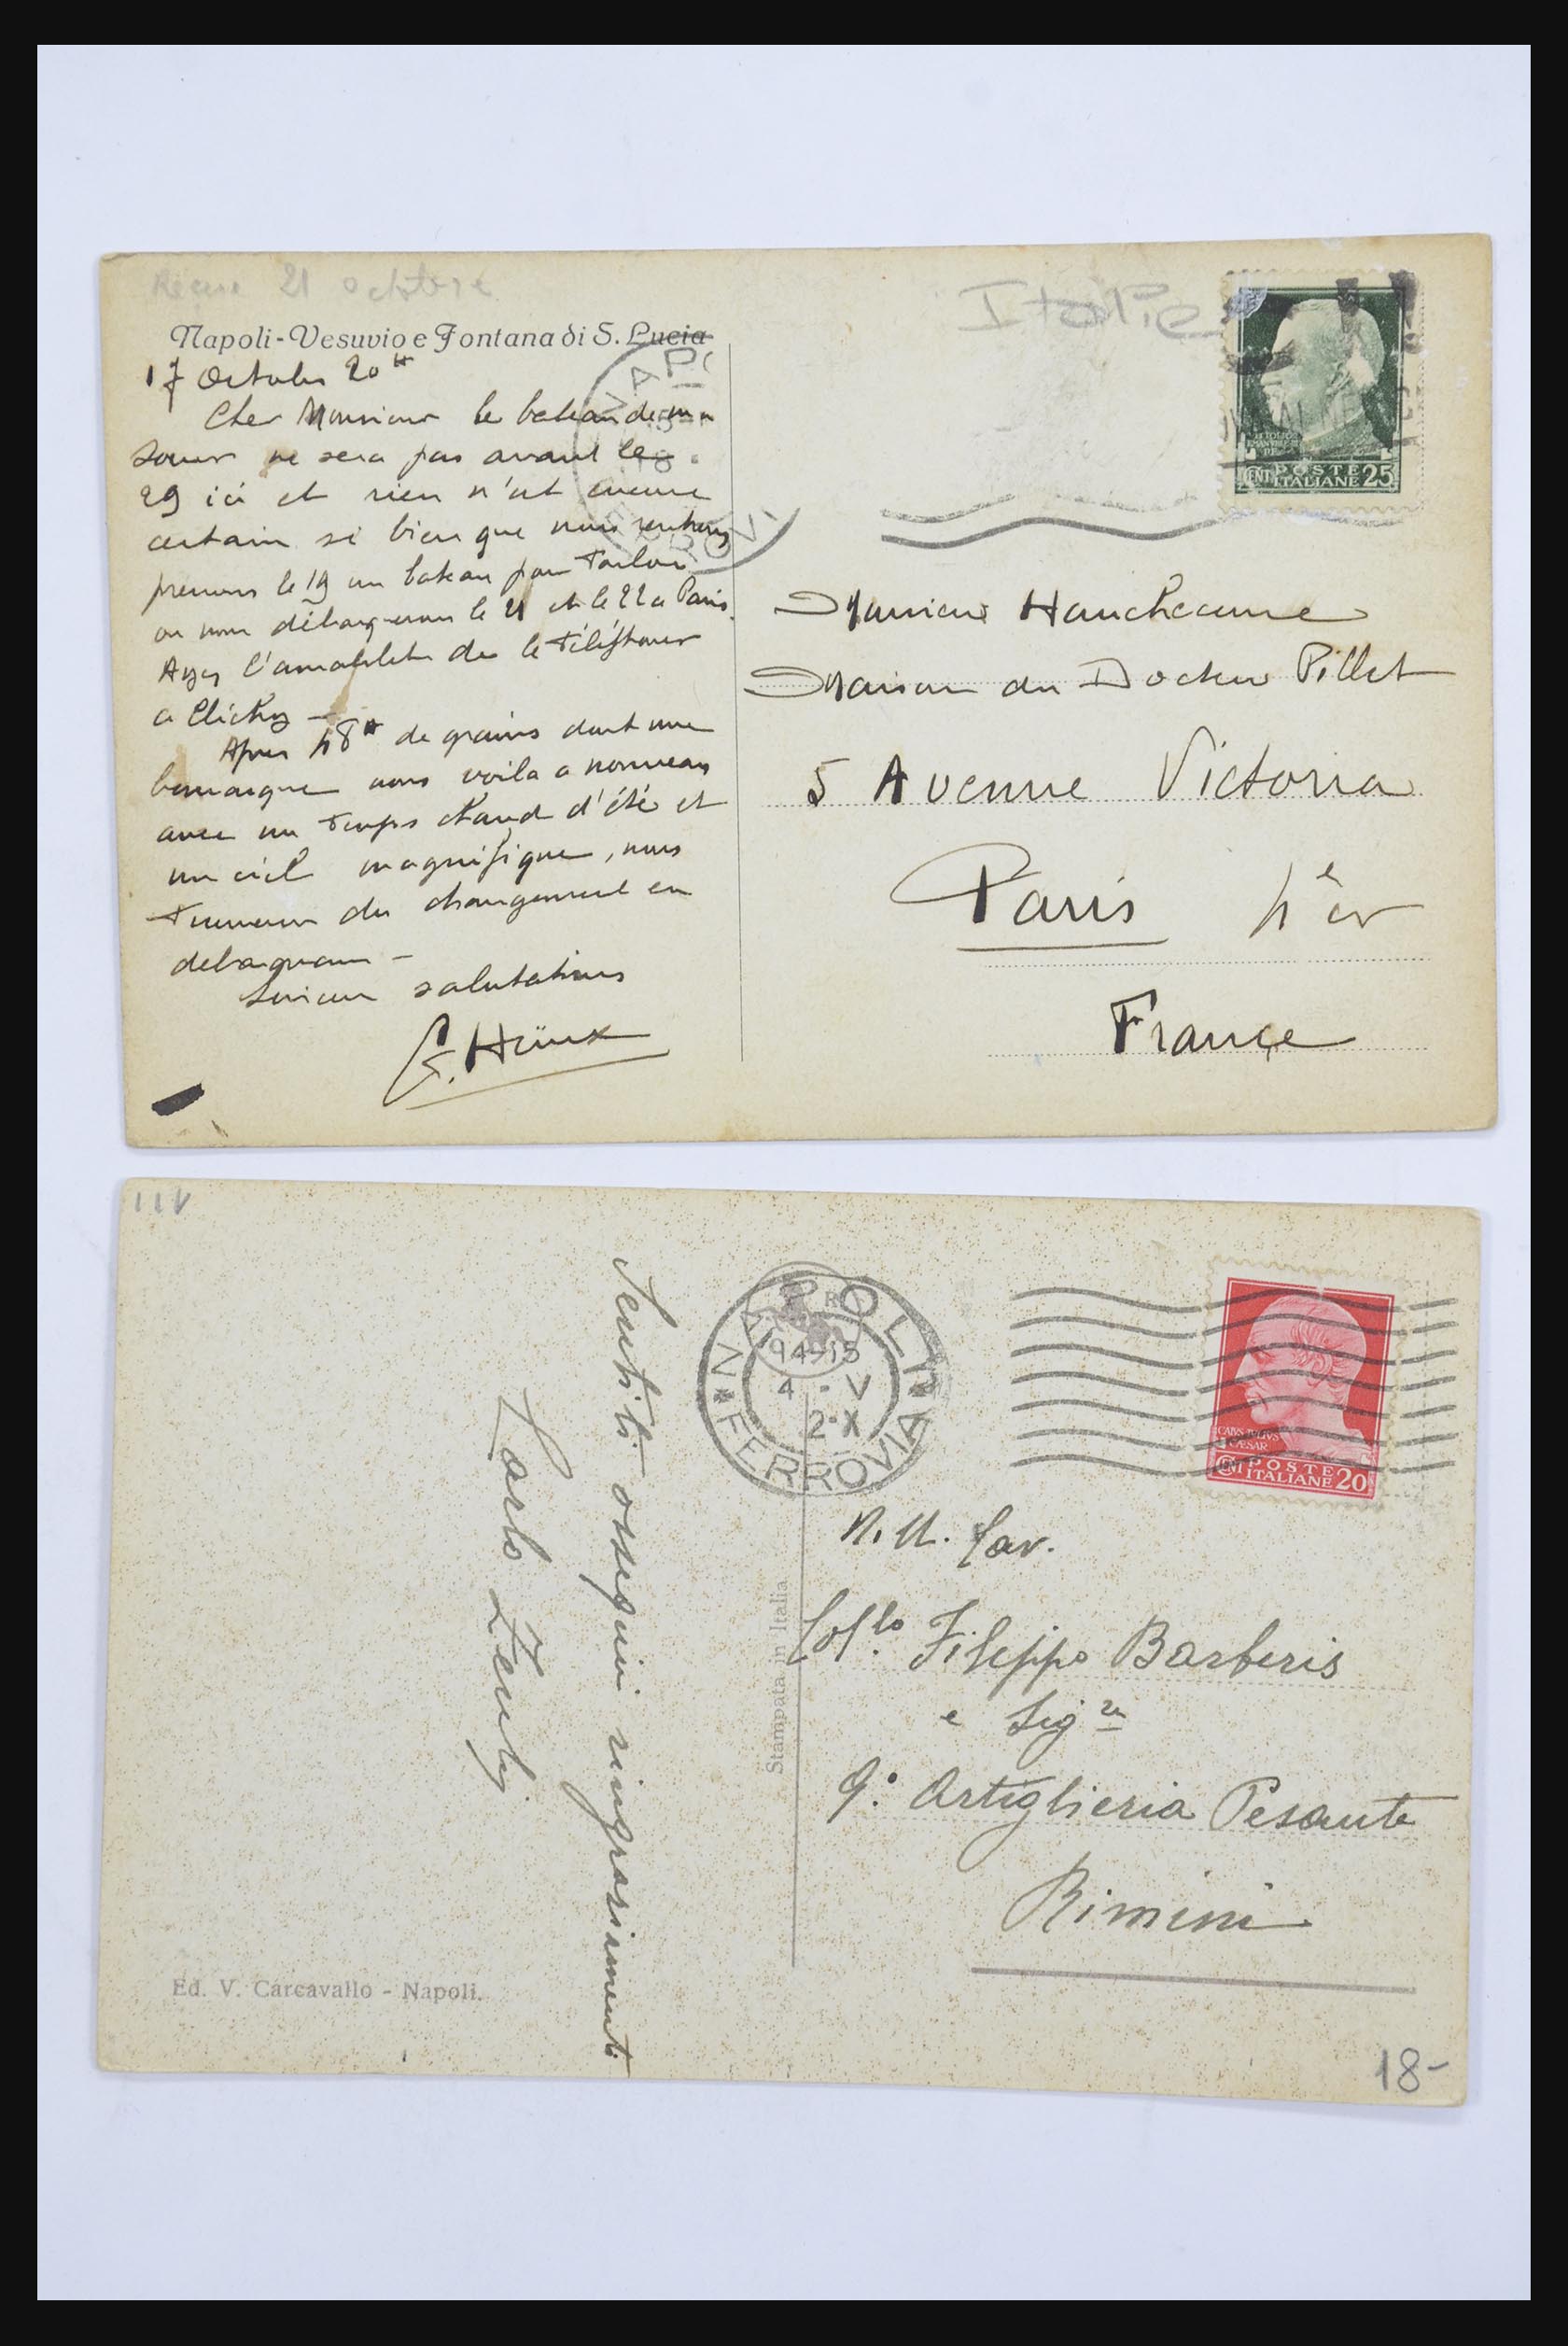 21 octobre
Italie
Napoli-Vesuvio e Fontana di S. Lucia
17 Octobre 20 H
Cher Monsieur le bateau de ma
soeur ne sera pas avant le
29 ici et rien n'est encore
certain si bien que nous
prenons le 19 un bateau pour Toulon
ou nous débarquerons le 21 et le 22 a Paris.
Ayez l'amabilité de le téléphoner
a Clichy –
Apres 48 H de grains dont une
nous voila a nouveau
avec un temps chaud d'été et
un ciel magnifique, nous
du changement en
–
salutations
G.
POSTE
CENT ITALIANE 25
Monsieur
Maison du Docteur Pillet
5 Avenue Victoria
Paris 4 er
France
NAPOLI
FERROVIA
94-15
4 - V
2-X
CAIVS IVLIVS
CAESAR
POSTE
CENT ITALIANE 20
N. U. Cav.
Col.lo Filippo Barberis
e Sig.ra
9° Artiglieria Pesante
Rimini
Sentiti ossequi ringraziamenti
Carlo
Stampata in Italia
Ed. V. Carcavallo - Napoli.
18-